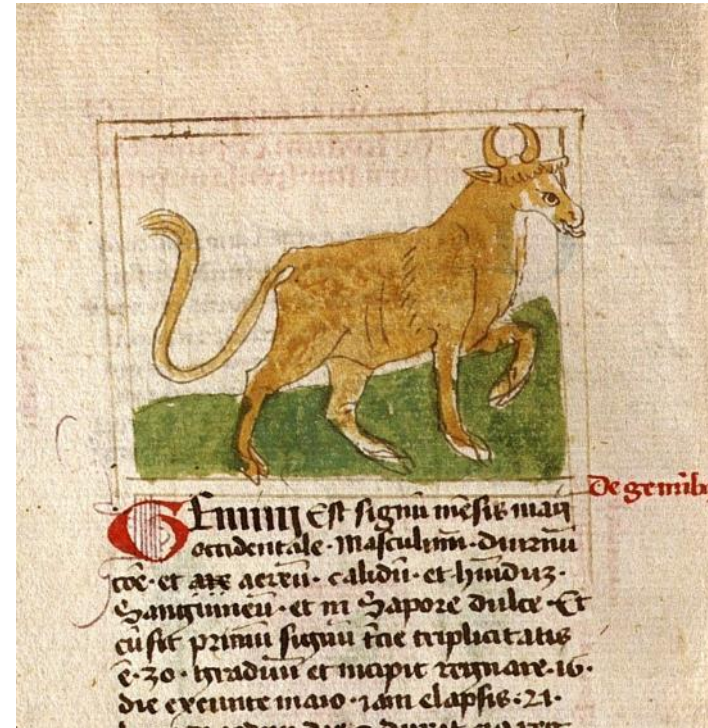 De geminib
GEmini Est signū mēsis maij
occidentale. Masculinū. diurnū
cōe. et aereū. calidū. et hūiduz.
Sanguineū. et in Sapore dulce. Et
cū sit primū signū tcie triplicitatis
ē. 30. graduū et incipit regnare. 16.
die exeunte maio. iam elapsis. 21.